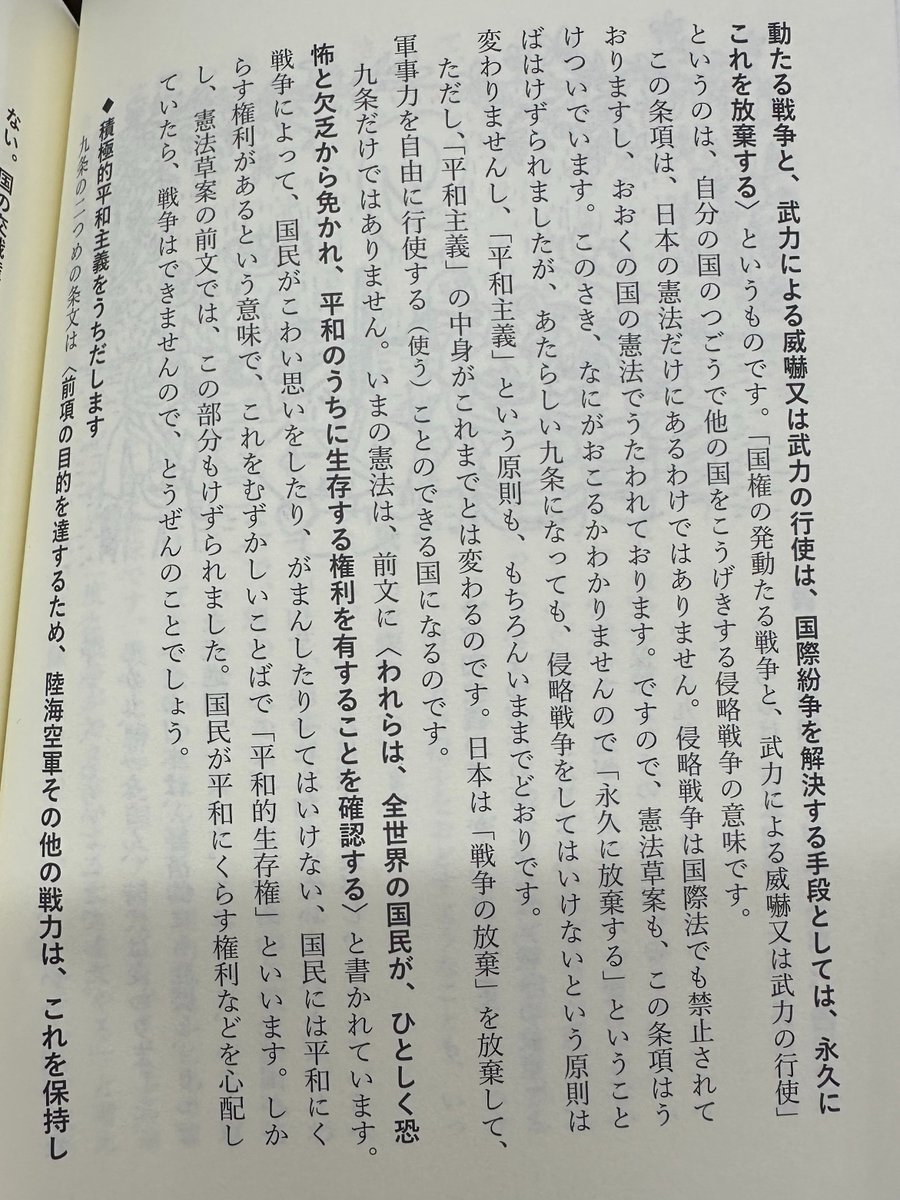 動たる戦争と、武力による威嚇又は武力の行使は、国際紛争を解決する手段としては、永久に
これを放棄する〉というものです。「国権の発動たる戦争と、武力による威嚇又は武力の行使」
というのは、自分の国のつごうで他の国をこうげきする侵略戦争の意味です。
この条項は、日本の憲法だけにあるわけではありません。侵略戦争は国際法でも禁止されて
おりますし、おおくの国の憲法でうたわれております。ですので、憲法草案も、この条項はう
けついでいます。このさき、なにがおこるかわかりませんので「永久に放棄する」ということ
ばはけずられましたが、あたらしい九条になっても、侵略戦争をしてはいけないという原則は
変わりませんし、「平和主義」という原則も、もちろんいままでどおりです。
ただし、「平和主義」の中身がこれまでとは変わるのです。日本は「戦争の放棄」を放棄して、
軍事力を自由に行使する（使う）ことのできる国になるのです。
九条だけではありません。いまの憲法は、前文に〈われらは、全世界の国民が、ひとしく恐
怖と欠乏から免かれ、平和のうちに生存する権利を有することを確認する〉と書かれています。
戦争によって、国民がこわい思いをしたり、がまんしたりしてはいけない、国民には平和にく
らす権利があるという意味で、これをむずかしいことばで「平和的生存権」といいます。しか
し、憲法草案の前文では、この部分もけずられました。国民が平和にくらす権利などを心配し
ていたら、戦争はできませんので、とうぜんのことでしょう。
◆積極的平和主義をうちだします
九条の二つめの条文は〈前項の目的を達するため、陸海空軍その他の戦力は、これを保持し
ない。国の交戦権